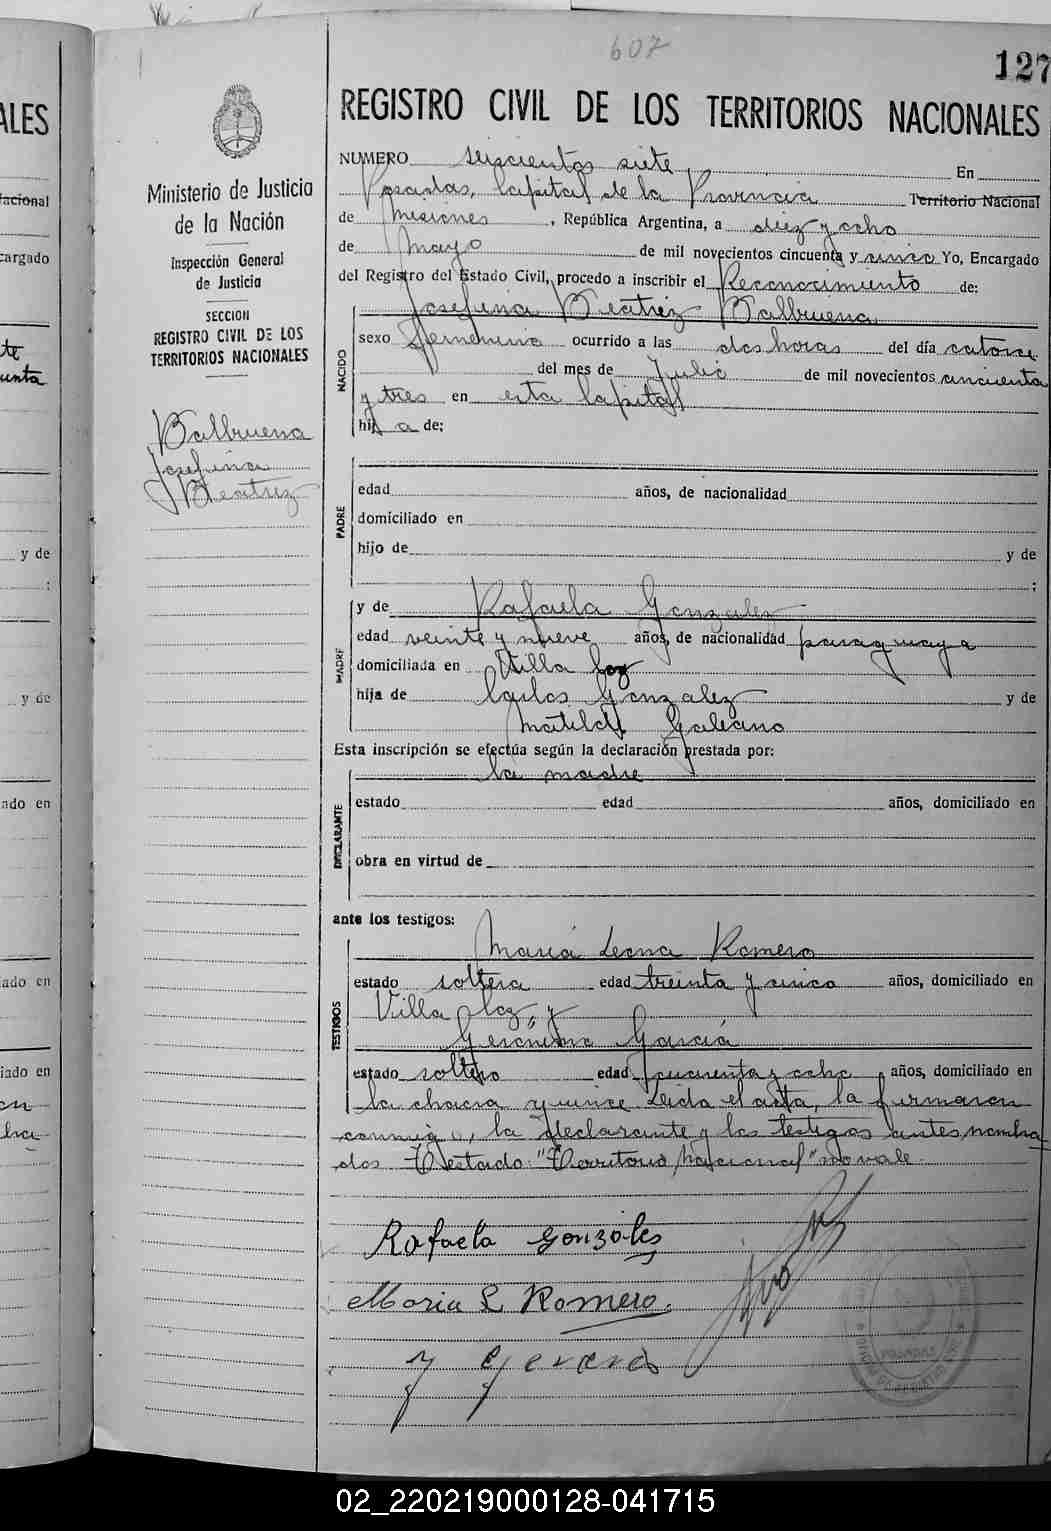 607
127
REGISTRO CIVIL DE LOS TERRITORIOS NACIONALES
NUMERO seiscientos siete En
Posadas, Capital de la Provincia Territorio Nacional
de Misiones, República Argentina, a diez y ocho
de mayo de mil novecientos cincuenta y cinco Yo, Encargado
del Registro del Estado Civil, procedo a inscribir el Reconocimiento de:
Josefina Beatriz Balbuena
NACIDO
sexo femenino ocurrido a las dos horas del día catorce
del mes de Julio de mil novecientos cincuenta
y tres en esta Capital
hija de:
PADRE
edad años, de nacionalidad
domiciliado en
hijo de y de
;
y de Rafaela Gonzalez
MADRE
edad veinte y nueve años, de nacionalidad paraguaya
domiciliada en Villa Coz
hija de Carlos Gonzalez y de
Matilde Galeano
Esta inscripción se efectúa según la declaración prestada por:
la madre
DECLARANTE
estado edad años, domiciliado en
obra en virtud de
ante los testigos:
María Leona Romero
TESTIGOS
estado soltera edad treinta y cinco años, domiciliado en
Villa Coz, y
Gerónimo García
estado soltero edad cuarenta y ocho años, domiciliado en
la chacra quince Leida el acta, la firmaron
conmigo, la declarante y los testigos antes nombra
dos Testado: "Territorio Nacional" no vale.
Rafaela Gonzáles
Maria L Romero
Ministerio de Justicia
de la Nación
Inspección General
de Justicia
SECCION
REGISTRO CIVIL DE LOS
TERRITORIOS NACIONALES
Balbuena
Josefina
Beatriz
POSADAS
ALES
Nacional
cargado
te
unta
y de
;
y de
ado en
iado en
iado en
02_220219000128-041715